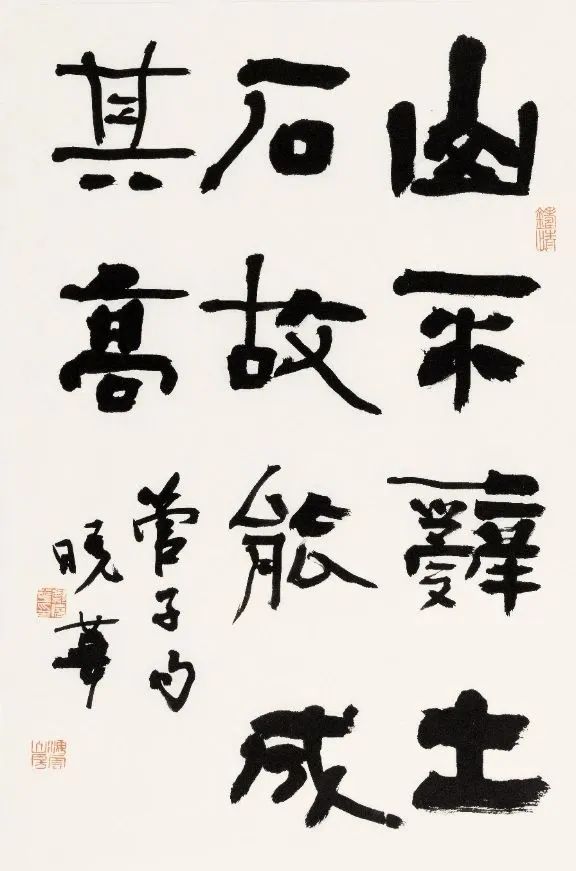 山不辭土
石故能成
其高
管子句
晓華